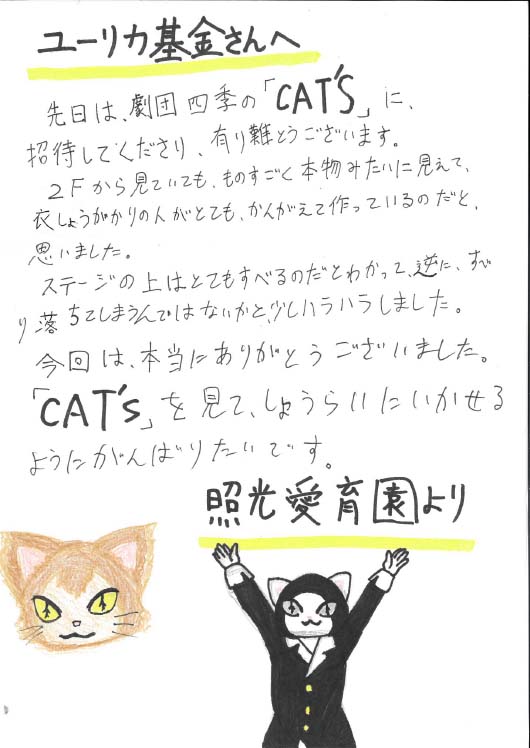 ユーリカ基金さんへ
先日は、劇団四季の「CAT'S」に、
招待してくださり、有り難とうございます。
2Fから見ていても、ものすごく本物みたいに見えて、
衣しょうがかりの人がとても、かんがえて作っているのだと、
思いました。
ステージの上はとてもすべるのだとわかって、逆に、すべ
り落ちてしまうんではないかと、少しハラハラしました。
今回は、本当にありがとうございました。
「CAT's」を見て、しょうらいにいかせる
ようにがんばりたいです。
照光愛育園より